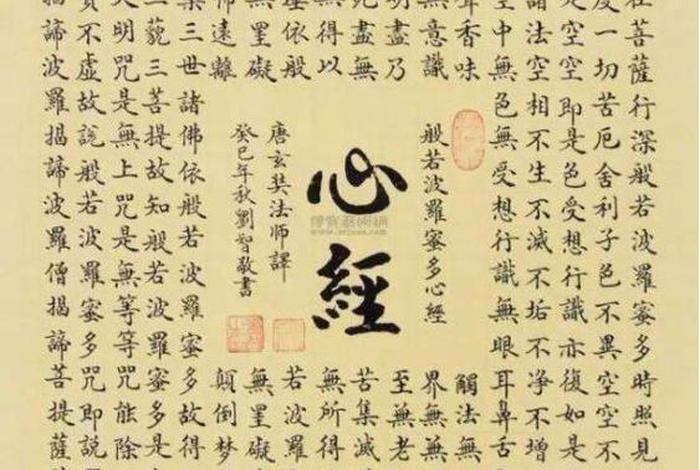 在菩薩行深般若波羅蜜多時照見
度一切苦厄舍利子色不異空空不
是空空即是色受想行識亦復如是
諸法空相不生不滅不垢不净不增
空中無色無受想行識無眼耳鼻舌
香味
觸法無
無意識
界無無
明盡乃
至無老
死盡無
苦集滅
無得以
無所得
薩依般
若波羅
無罣礙
無罣礙
怖遠離
顛倒夢
般若波羅蜜多心經
心經
博寶藝術網
唐玄奘法師譯
癸巳年秋劉智敬書
槃三世諸佛依般若波羅蜜多故得
三藐三菩提故知般若波羅蜜多是
大明咒是無上咒是無等等咒能除
實不虛故說般若波羅蜜多咒即說
揭諦波羅揭諦波羅僧揭諦菩提薩